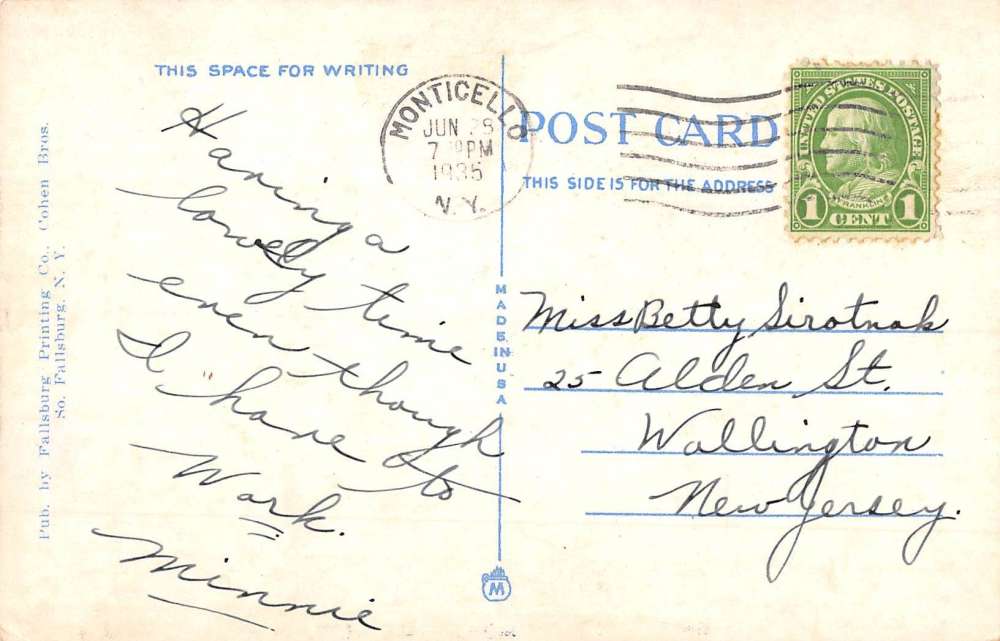 THIS SPACE FOR WRITING
Having a
lovely time
even though
I have to
Work.
Minnie
Pub. by Fallsburg Printing Co., Cohen Bros.
So. Fallsburg, N. Y.
MONTICELLO
JUN 25
7 PM
1935
N.Y.
POST CARD
THIS SIDE IS FOR THE ADDRESS
UNITED STATES POSTAGE
FRANKLIN
1 CENT 1
MADE IN USA
M
Miss Betty Sirotnak
25 Alden St.
Wallington
New Jersey.